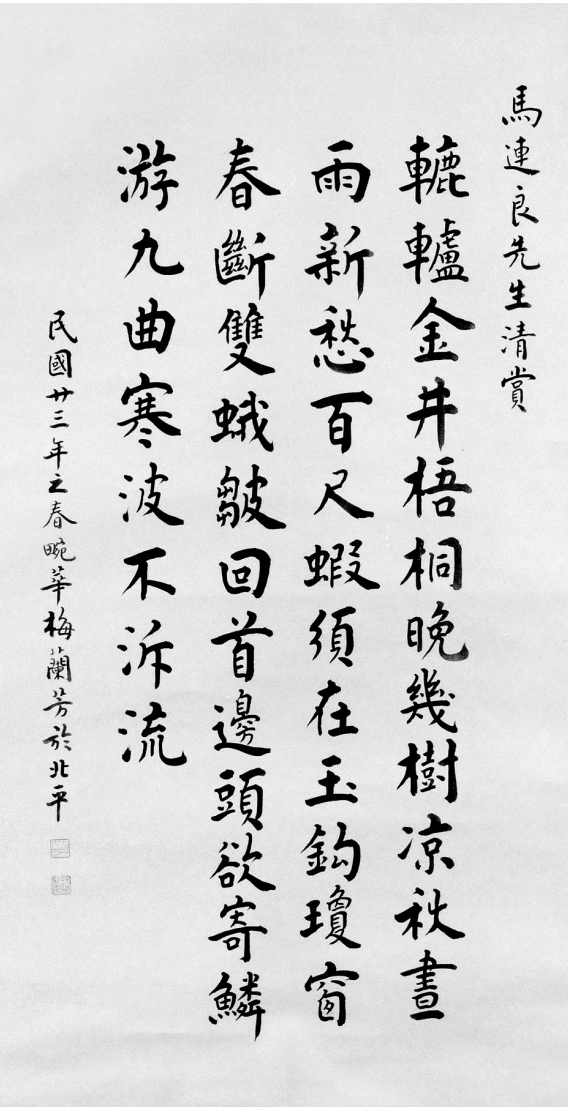 馬連良先生清賞
轆轤金井梧桐晚幾樹凉秋晝
雨新愁百尺蝦須在玉鈎瓊窗
春斷雙蛾皺回首邊頭欲寄鱗
游九曲寒波不泝流
民國廿三年之春畹華梅蘭芳於北平